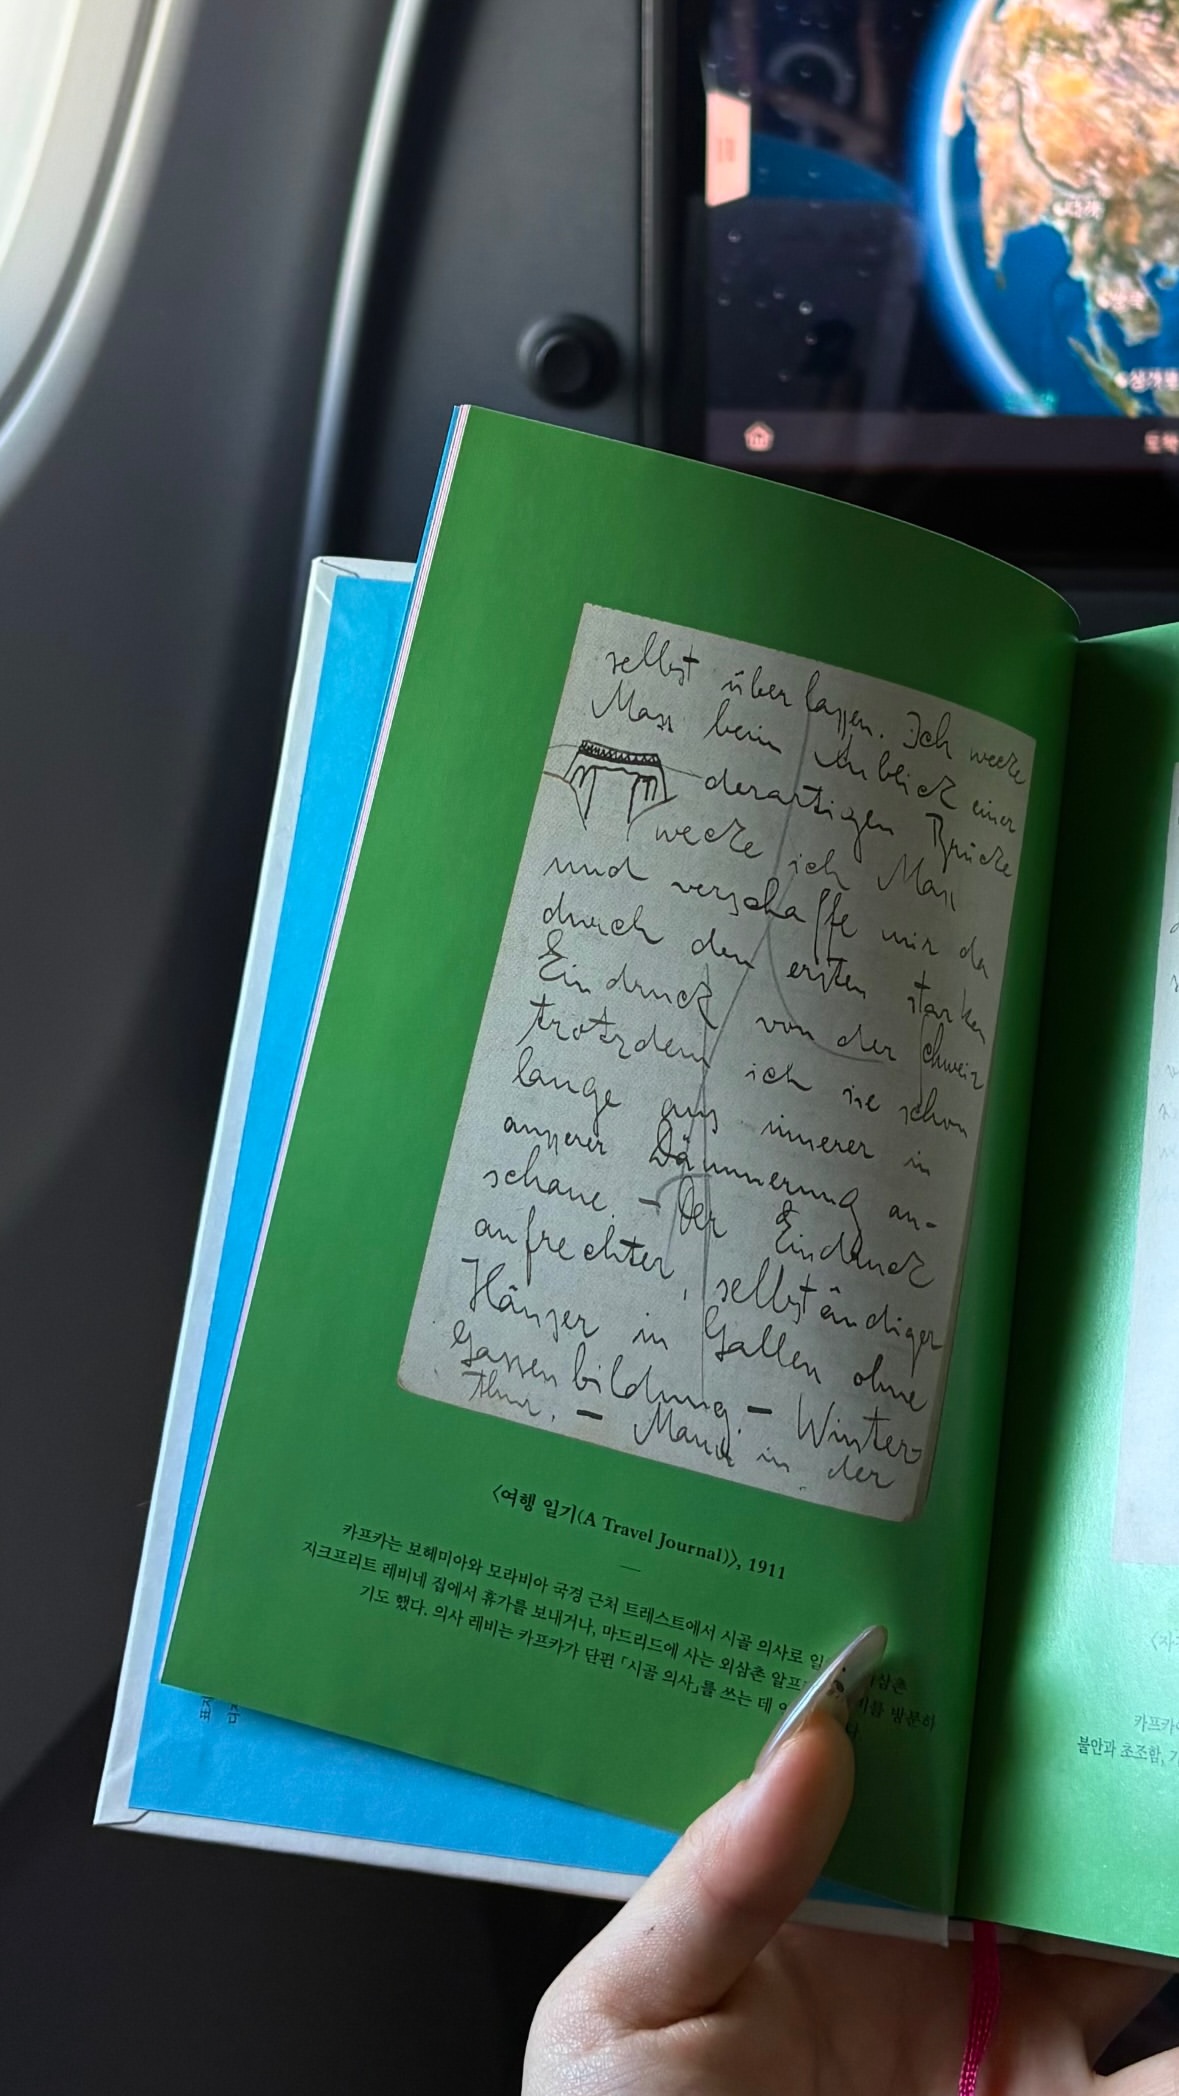 싱가포
selbst überlassen. Ich wecke
Max beim Anblick einer
derartigen Brücke
wecke ich Max
und verschaffe mir da
durch den ersten starken
Eindruck von der Schweiz
trotzdem ich sie schon
lange aus innerer in
äusserer Dämmerung an-
schaue. – Der Eindruck
aufrechter, selbständiger
Häuser in Gallen ohne
Gassenbildung. – Winter-
thur. – Mann in der
〈여행 일기(A Travel Journal)〉, 1911
카프카는 보헤미아와 모라비아 국경 근처 트레스트에서 시골 의사로 일 외삼촌
지크프리트 레비네 집에서 휴가를 보내거나, 마드리드에 사는 외삼촌 알프 를 방문하
기도 했다. 의사 레비는 카프카가 단편 「시골 의사」를 쓰는 데 다.
카프카
불안과 초조함,